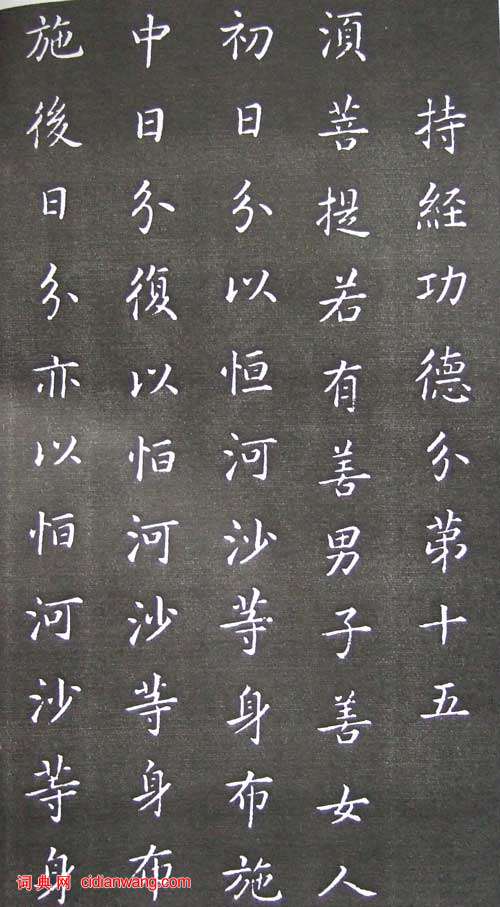 持經功德分第十五
須菩提若有善男子善女人
初日分以恒河沙等身布施
中日分復以恒河沙等身布
施後日分亦以恒河沙等身
词典网 cidianwang.com